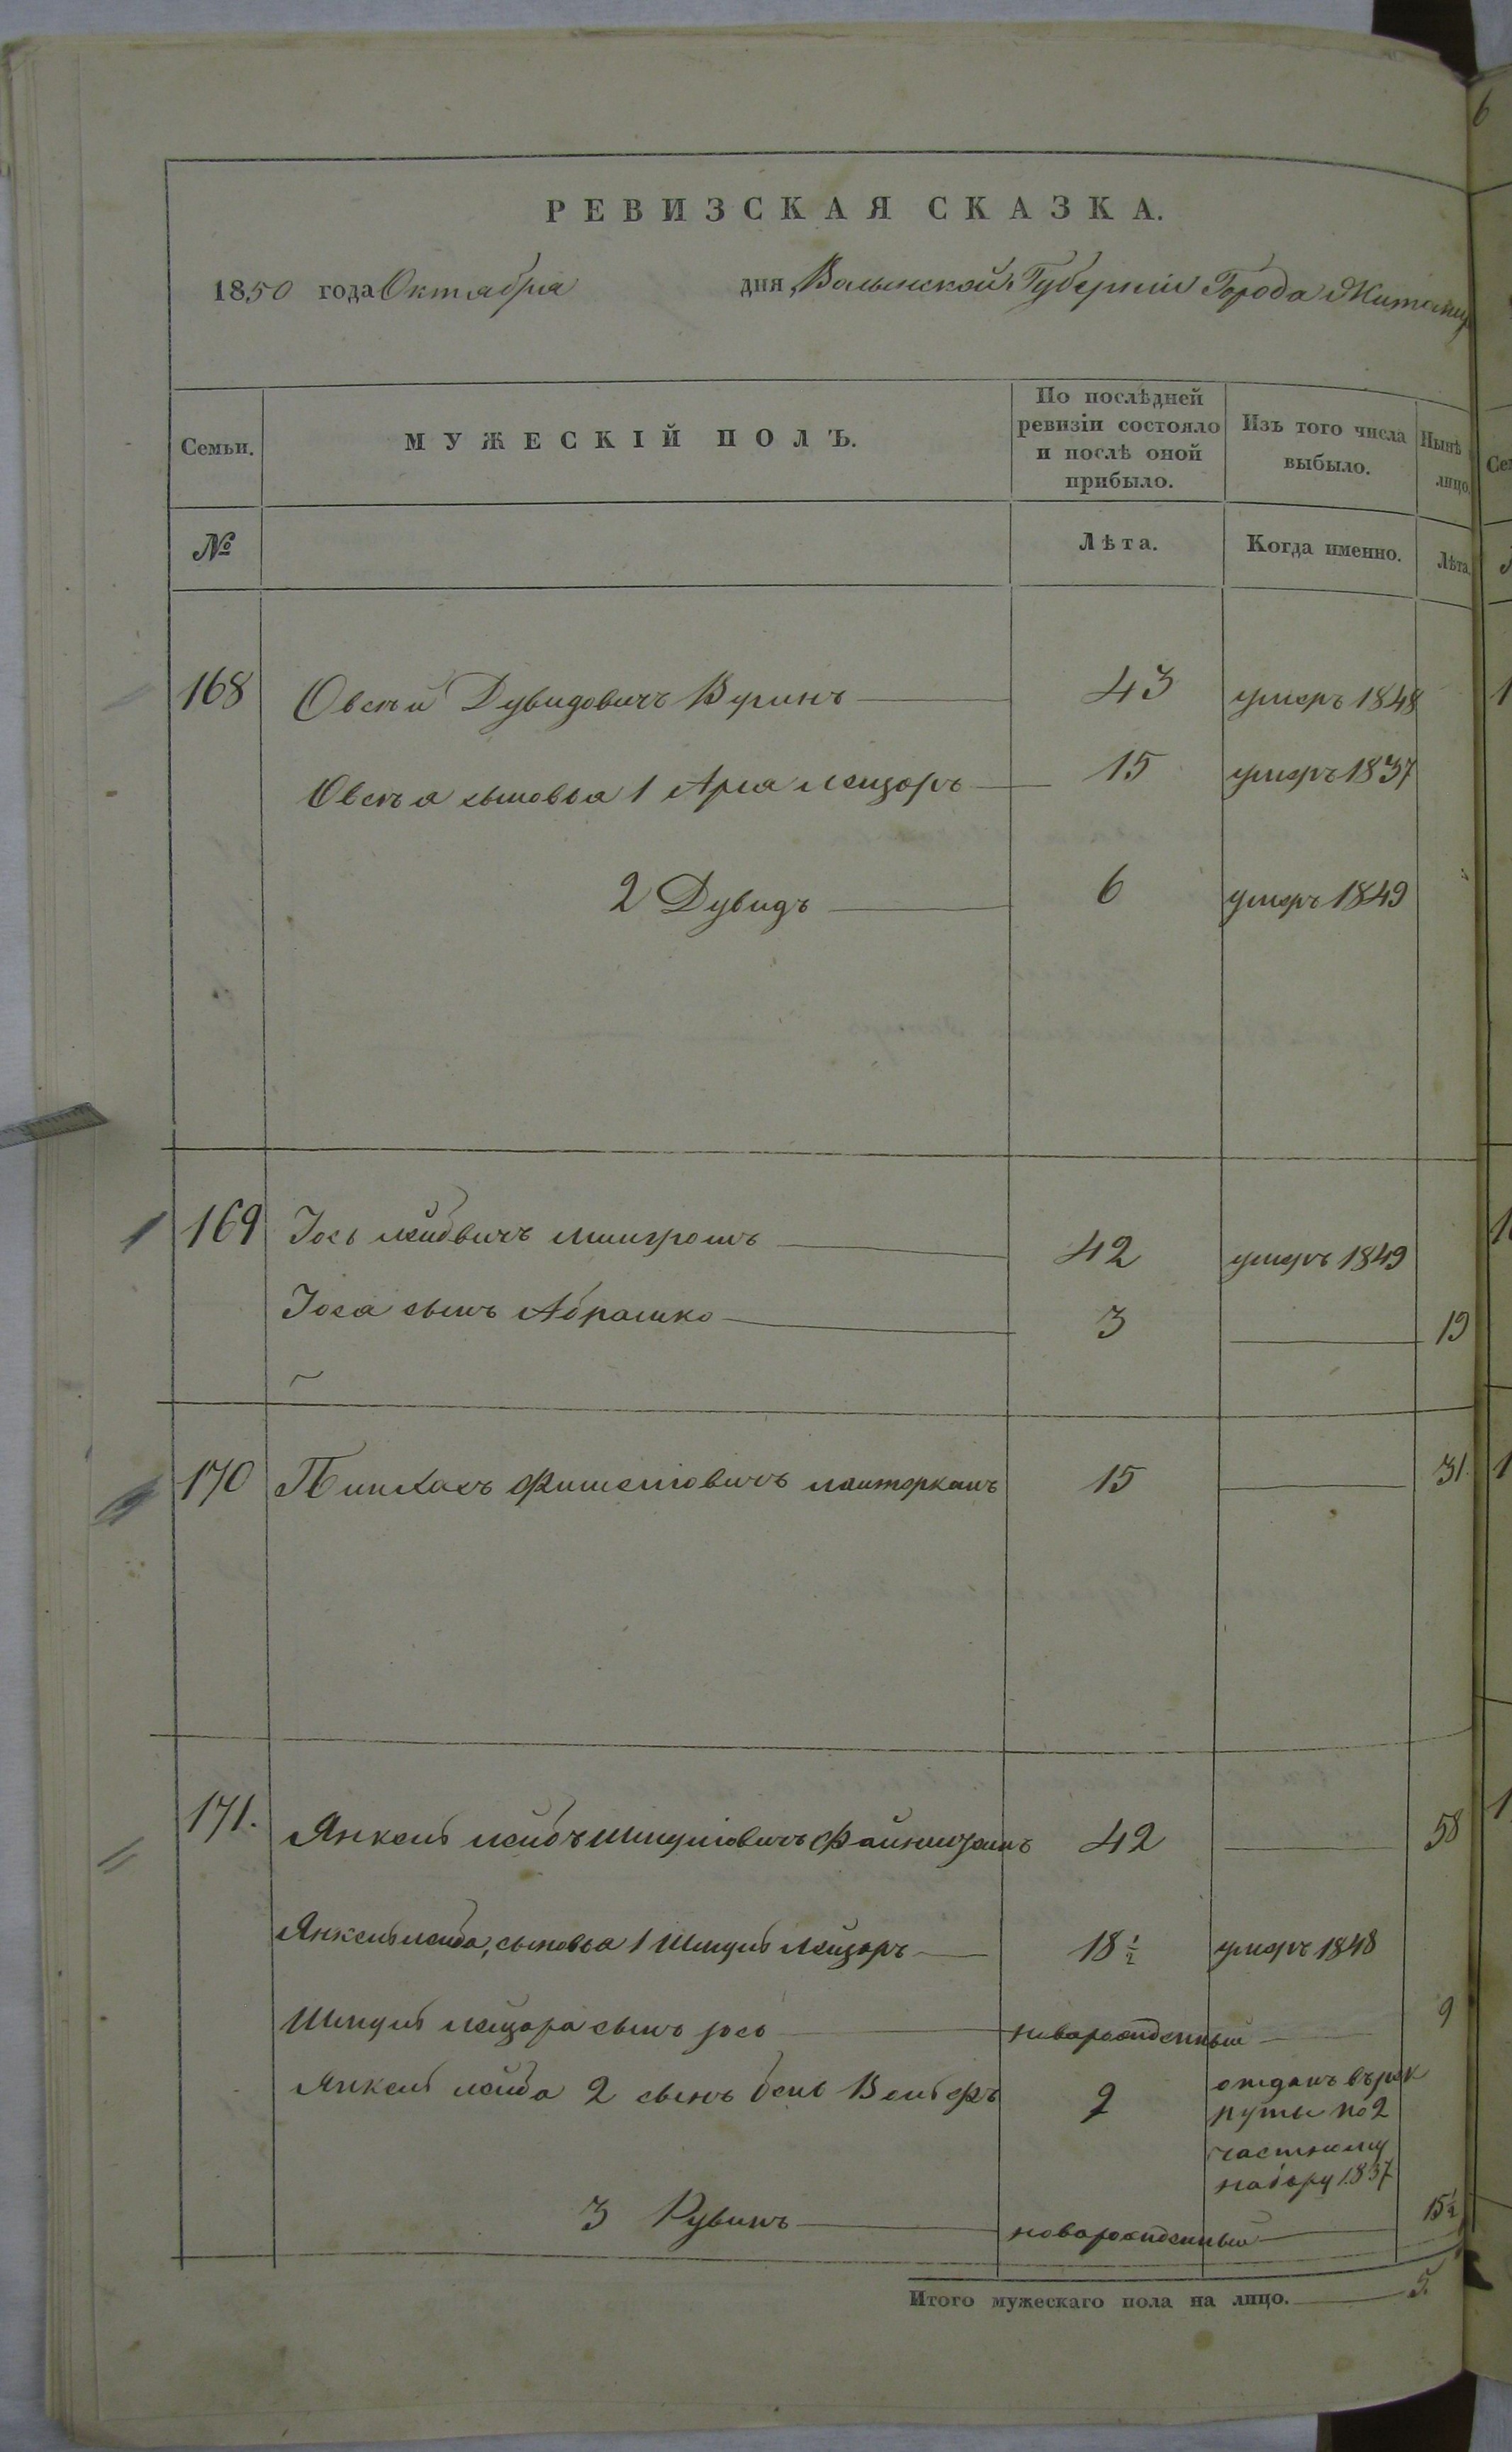 РЕВИЗСКАЯ СКАЗКА.
1850 года Октября дня, Волынской Губерніи Города Житомир
Семьи.
МУЖЕСКІЙ ПОЛЪ.
По послѣдней ревизіи состояло и послѣ оной прибыло.
Изъ того числа выбыло.
Нынѣ лицо.
№
Лѣта.
Когда именно.
Лѣта.
168 Овсѣй Дувидовичъ Вугинъ 43 умеръ 1848
Овсѣя сыновья 1 Арія Лейзоръ 15 умеръ 1837
2 Дувидъ 6 умеръ 1849
169 Іось Лейбвичъ 42 умеръ 1849
Іося сынъ Абрашко 3 19
170 Пинхасъ Фишелювичъ 15 31
171. Янкель Лейбъ Шмулювичъ 42 58
Янкель Лейба, сыновья 1 Шмуль Лейзоръ 18 ½ умеръ 1848
Шмуль Лейзора сынъ Іось новарожденный 9
Янкель Лейба 2 сынъ Бень Вольфъ 9 отданъ въ рек
руты по 2
частному
набору 1837
3 Рувинъ новарожденный 15½
Итого мужескаго пола на лицо. 5.